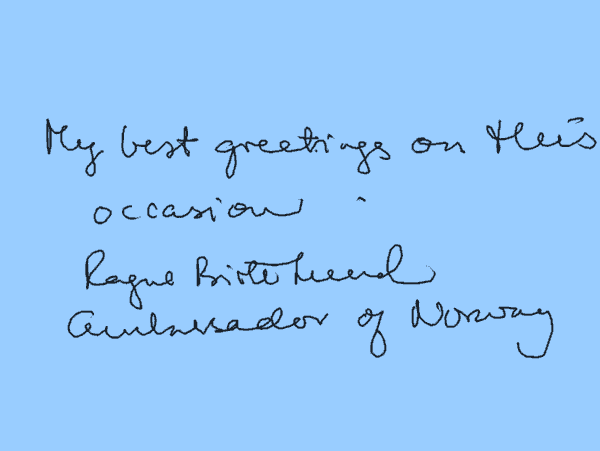 My best greetings on this
occasion.
Ragne Birte Lund
Ambassador of Norway